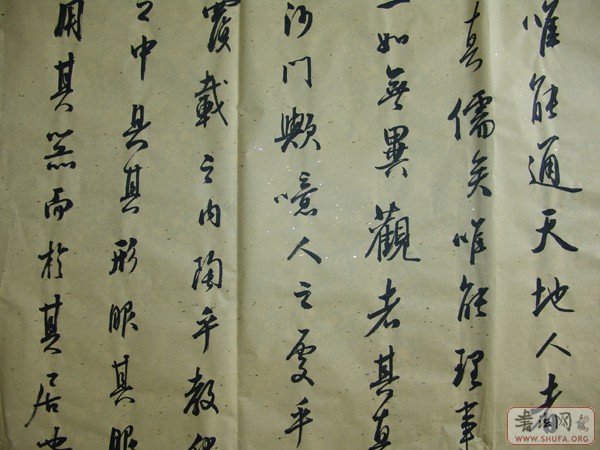 唯能通天地人者
真儒矣唯能理事
一如无異觀者其真
沙門歟噫人之處乎
覆載之內陶乎教化
之中具其形眼其服
用其器而於其居也
書法网
WWW.SHUFA.ORG